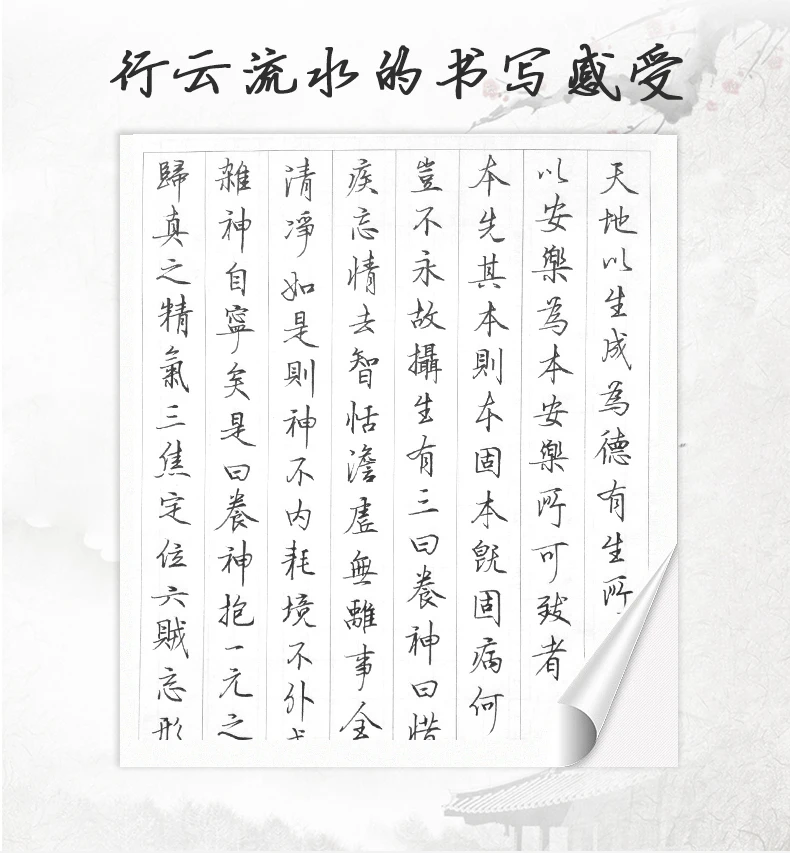 行云流水的书写感受
天地以生成為德有生所
以安樂為本安樂所可致者
本先其本則本固本既固病何
豈不永故攝生有三曰養神曰惜
疾忘情去智恬澹虛無離事全
清凈如是則神不內耗境不外
雜神自寧矣是曰養神抱一元之
歸真之精氣三焦定位六賊忘形